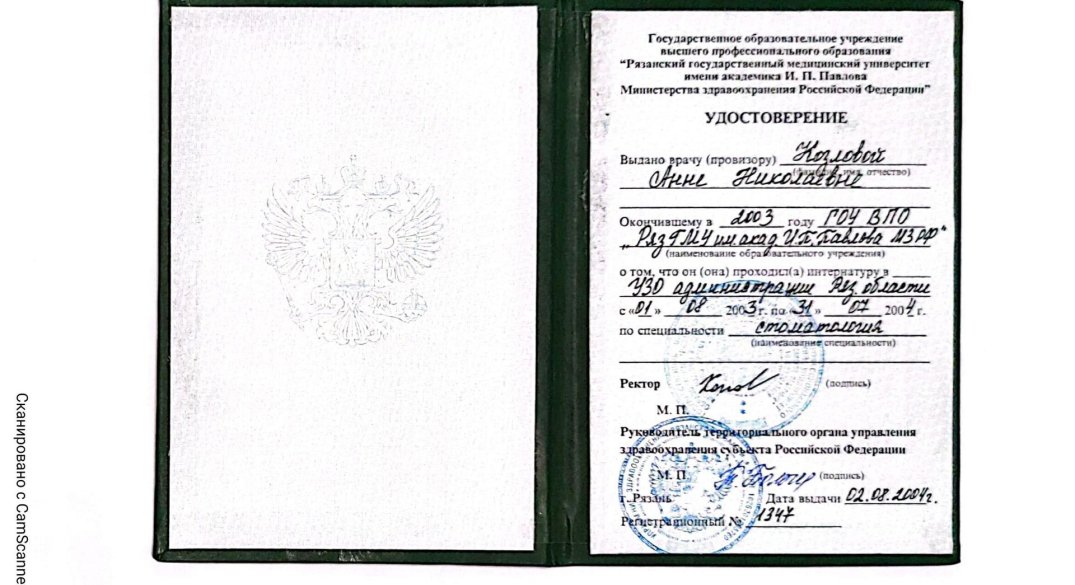 Государственное образовательное учреждение
высшего профессионального образования
“Рязанский государственный медицинский университет
имени академика И. П. Павлова
Министерства здравоохранения Российской Федерации”
УДОСТОВЕРЕНИЕ
Выдано врачу (провизору) Козловой
(фамилия, имя, отчество)
Анне Николаевне
Окончившему в 2003 году ГОУ ВПО
„РязГМУ им. акад. И.П. Павлова МЗ РФ“
(наименование образовательного учреждения)
о том, что он (она) проходил(а) интернатуру в
УЗО администрации Ряз. области
с «01» 08 2003 г. по «31» 07 2004 г.
по специальности стоматология
(наименование специальности)
Ректор (подпись)
М. П.
Руководитель территориального органа управления
здравоохранения субъекта Российской Федерации
М. П. (подпись)
г. Рязань Дата выдачи 02.08.2004г.
Регистрационный № 1347
Сканировано с CamScanne